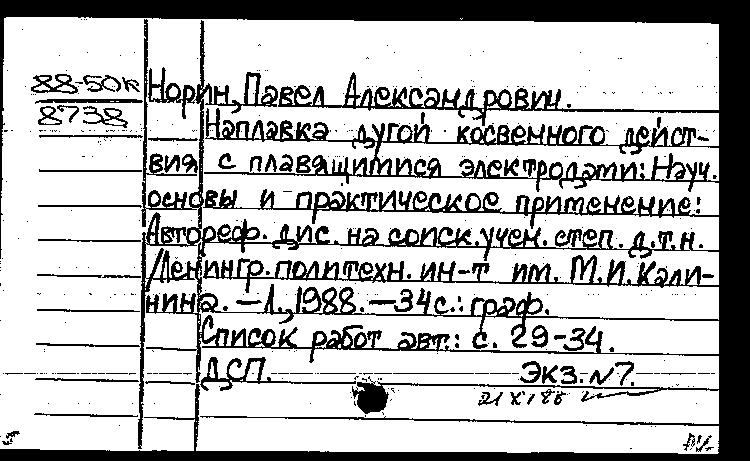 88-50к
8738
Норин, Павел Александрович.
Наплавка дугой косвенного дейст-
вия с плавящимися электродами: Науч.
основы и практическое применение:
Автореф. дис. на соиск. учен. степ. д.т.н.
/Ленингр. политехн. ин-т им. М.И. Кали-
нина. — Л., 1988. — 34 с.: граф.
Список работ авт.: с. 29-34.
ДСП. Экз. N7.
21 X 88